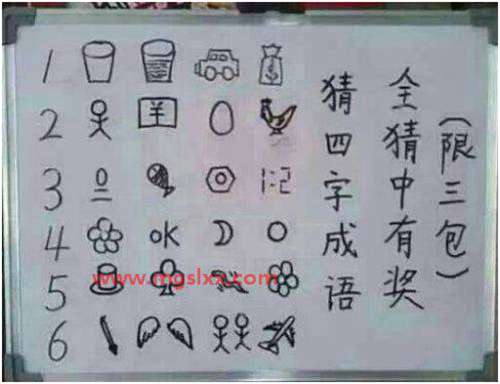 (限三包)
全猜中有奖
猜四字成语
1
2 羊
3 1:2
4 OK
5
6
www.mgslxx.com